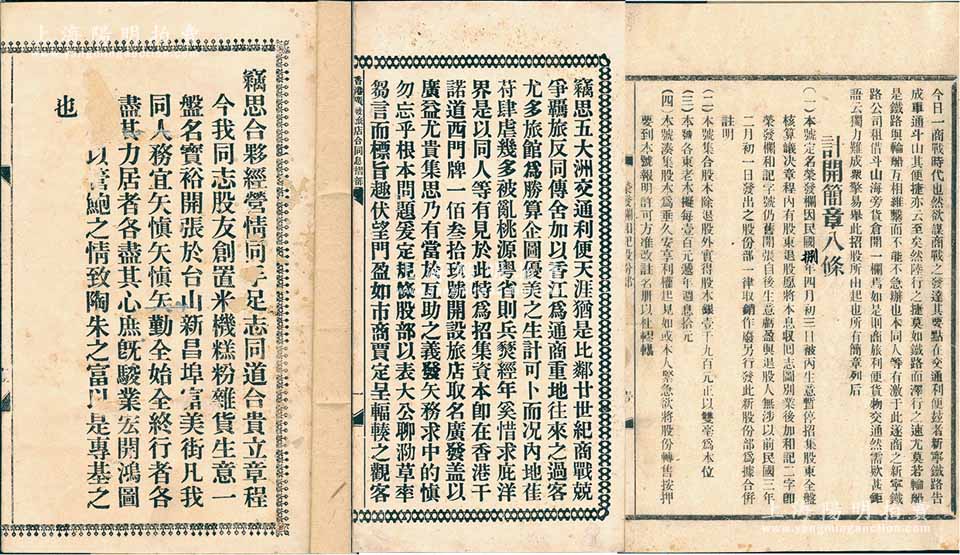 今日一商戰時代也然欲謀商戰之發達其要點在交通利便玆者新寧鐵路告
成車通斗山其便捷亦云至矣然陸行之捷莫如鐵路而澤行之速尤莫若輪船
是鐵路與輪船互相維繫而不能不急辦也本同人等有激于此遂商之新寧鐵
路公司租借斗山海旁貨倉開一欄焉如是則商旅利便貨物交通然需欵甚鉅
語云獨力難成衆擎易舉此招股所由起也所有簡章列后
計開簡章八條
(一)本號定名榮發欄因民國捌年四月初三日被丙生意暫停招集股東全盤
核算議决章程內有股東退股愿將本息収囘志圖別業後加和記二字即
榮發欄和記字號仍舊開張自後生意虧盈與退股人無涉以前民國三年
二月初一日發出之股份部一律取銷作廢另行發此新股份部爲據合倂
註明
(二)本號集合股本除退股外實得股本銀壹千九百元正以雙毫爲本位
(三)本號各東老本擬每壹百元遞年週息拾元
(四)本號湊集股本爲垂久安享利權起見如或本人緊急欲將股份轉售按押
要到本號報明許可方准改註名册以杜轇轕
竊思五大洲交通利便天涯猶是比鄰廿世紀商戰競
爭羈旅反同傳舍加以香江爲通商重地往來之過客
尤多旅館爲勝算企圖優美之生計可卜而況內地萑
苻肆虐幾多被亂桃源粤省則兵燹經年奚惜求庇洋
界是以同人等有見於此特爲招集資本卽在香港干
諾道西門牌一佰叁拾玖號開設旅店取名廣發盖以
廣益尤貴集思乃有當於互助之義發矢務求中的愼
勿忘乎根本問題爰定規條股部以表大公聊泐草率
芻言而標旨趣伏望門盈如市商賈定呈輻輳之觀客
竊思合夥經營情同手足志同道合貴立章程
今我同志股友創置米機糕粉雜貨生意一
盤名寳裕開張於台山新昌埠富美街凡我
同人務宜矢愼矢勤全始全終行者各
盡其力居者各盡其心庶旣駿業宏開鴻圖
以管鮑之情致陶朱之富以是專基之
也
上海陽明拍賣
www.yangmingauction.com